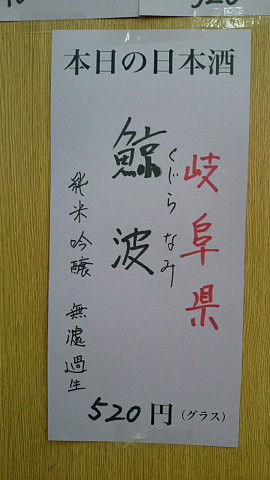 本日の日本酒
岐阜県
くじらなみ
鯨波
純米吟醸 無濾過生
520円(グラス)